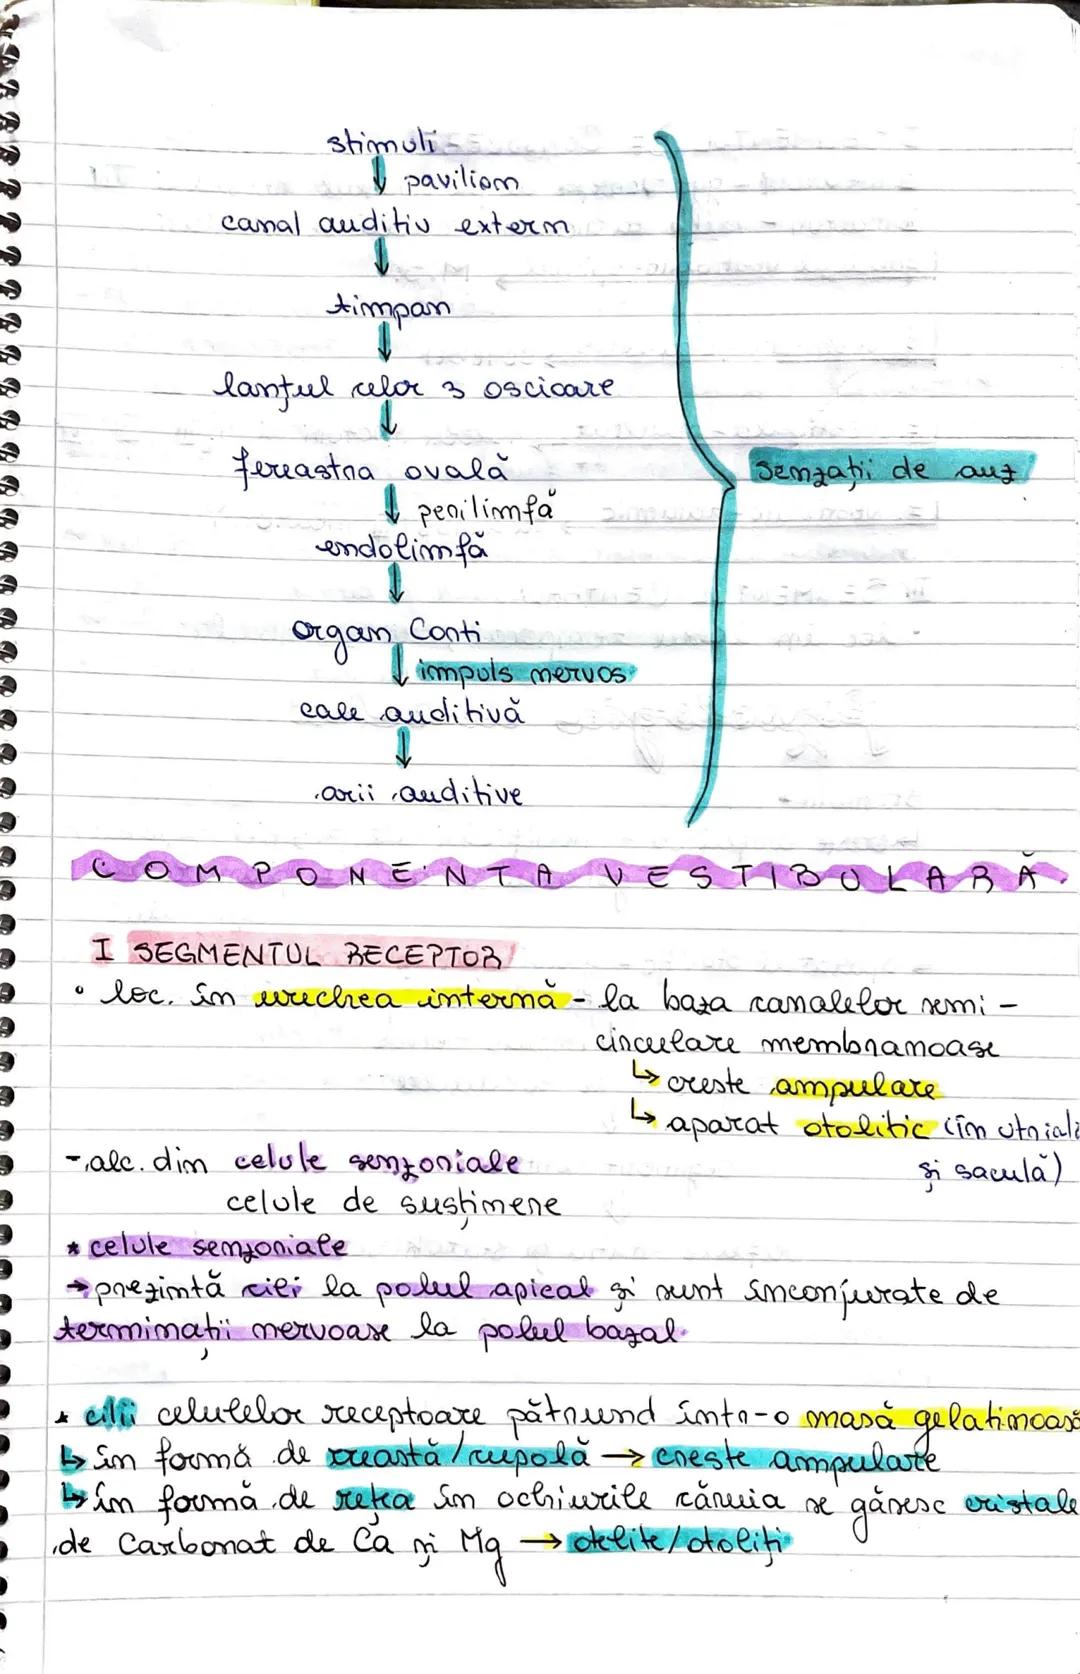 stimuli
↓ pavilion
canal auditiv extern
↓
timpan
↓
lanțul celor 3 oscioare
↓
fereastra ovală
↓ perilimfă
endolimfă
↓
organ Corti
↓ impuls nervos
cale auditivă
↓
arii auditive
Senzații de auz
COMPONENTA VESTIBULARĂ
I SEGMENTUL RECEPTOR
• loc. în urechea internă - la baza canalelor semi-
circulare membranoase
↳ creste ampulare
↳ aparat otolitic (în utriculă
și saculă)
- alc. din celule senzoriale
celule de susținere
* celule senzoriale
→ prezintă cili la polul apical și sunt înconjurate de
terminații nervoase la polul bazal
* cilii celulelor receptoare pătrund într-o masă gelatinoasă
↳ în formă de creastă/cupolă → creste ampulare
↳ în formă de rețea în ochiurile căruia se găsesc cristale
de Carbonat de Ca și Mg → otolite/otoliți